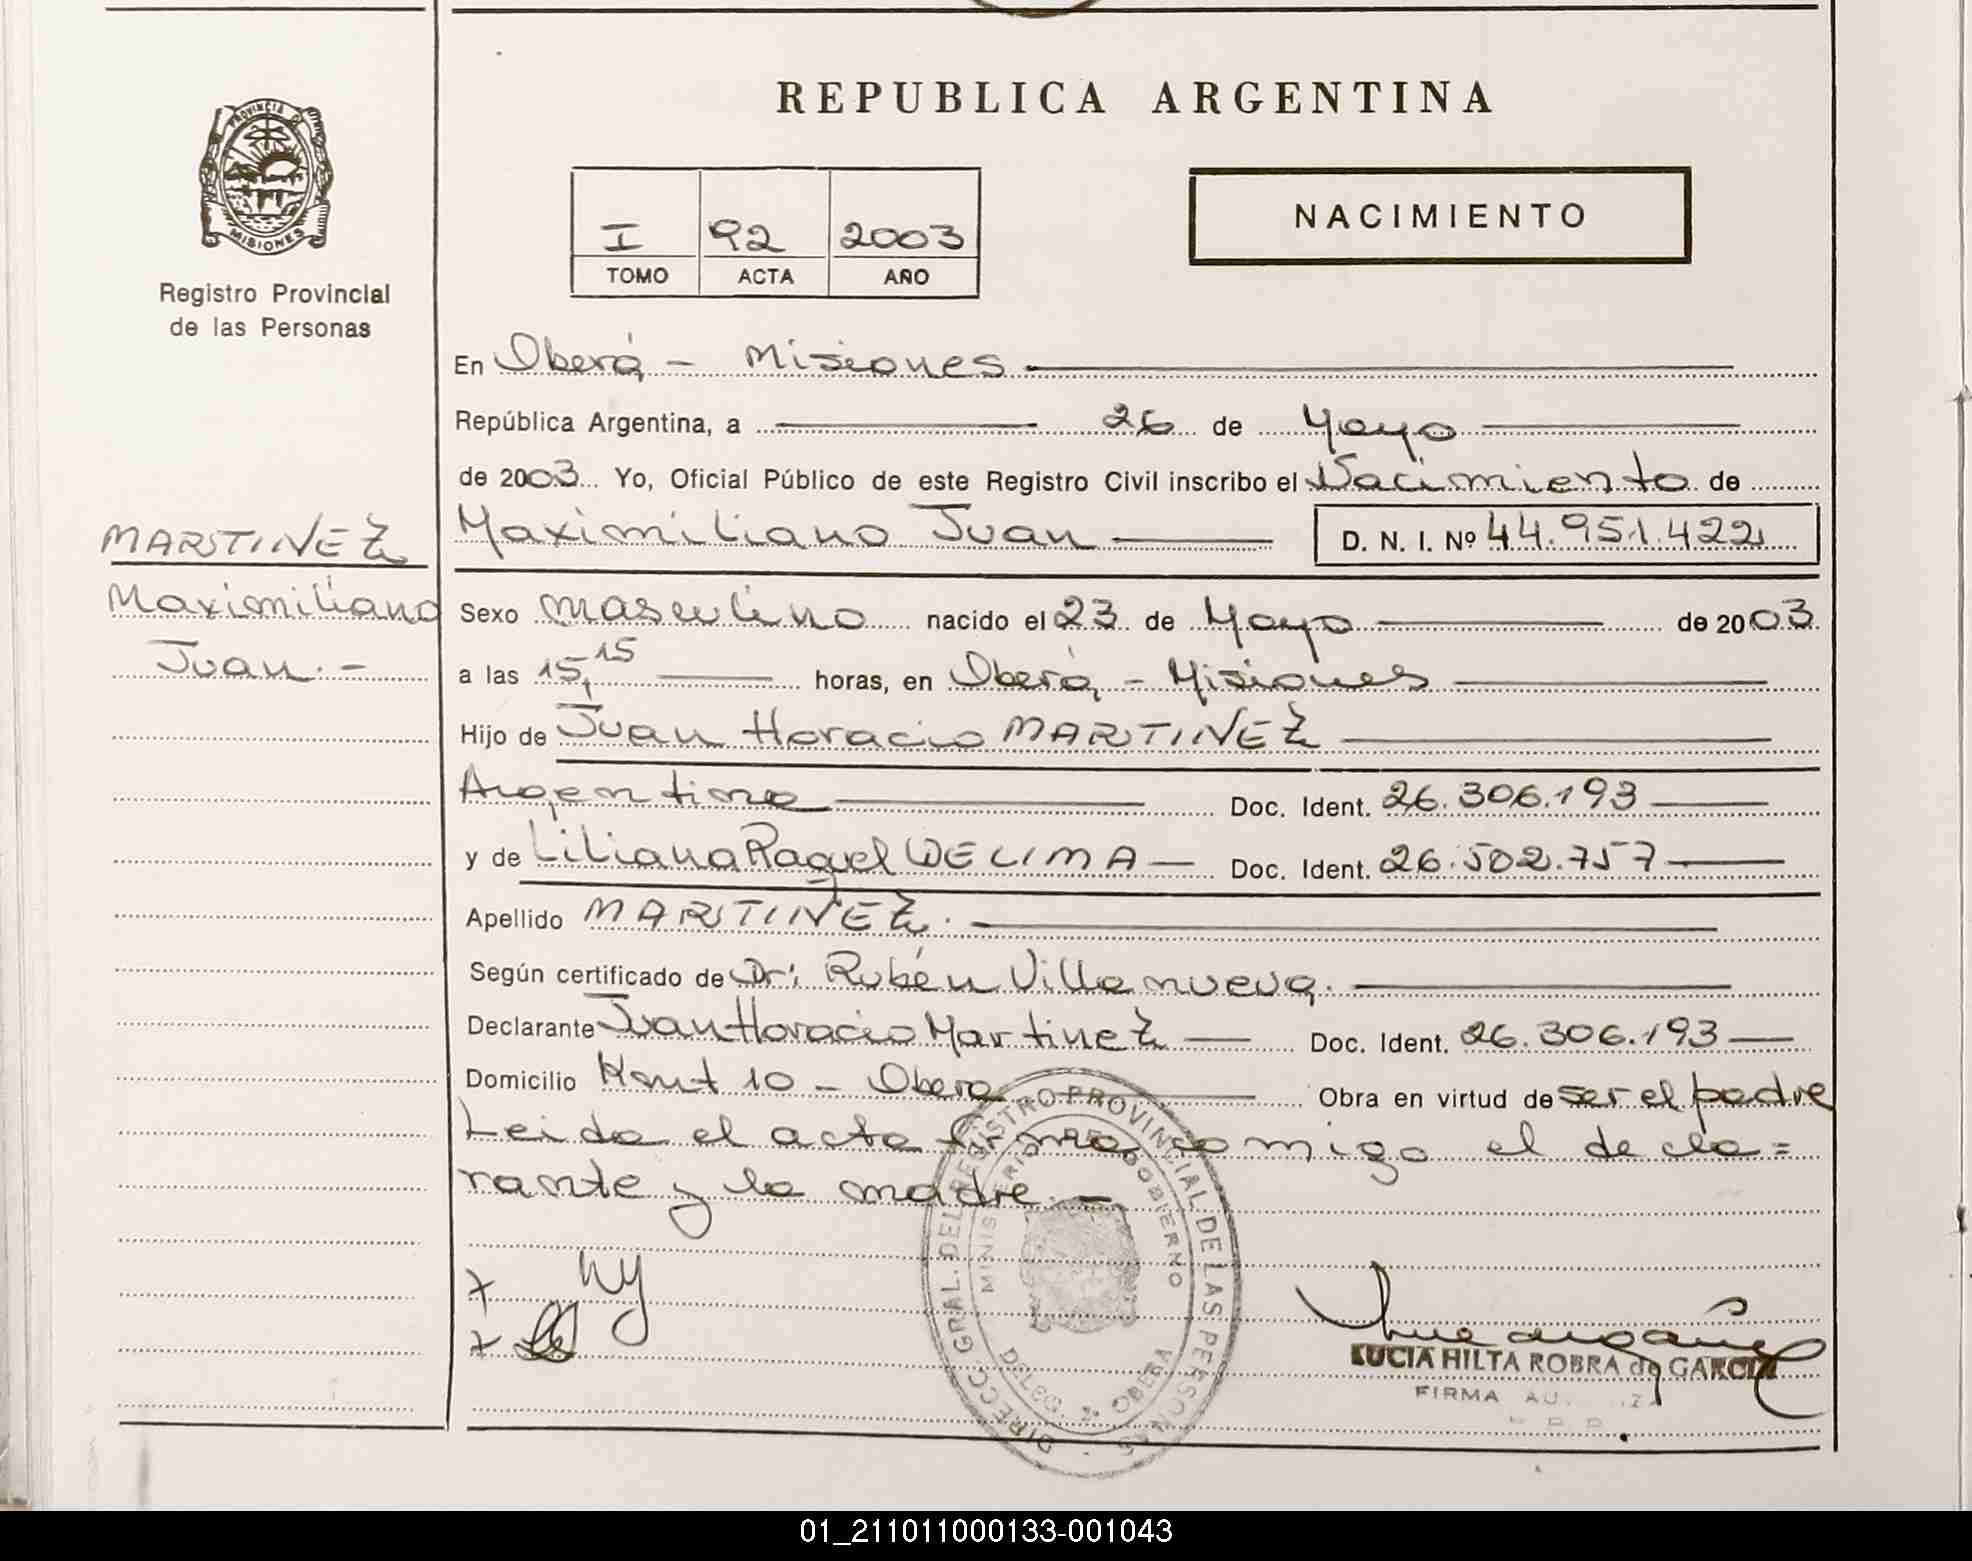 REPUBLICA ARGENTINA
PROVINCIA D
MISIONES
Registro Provincial
de las Personas
I 92 2003
TOMO ACTA AÑO
NACIMIENTO
En Oberá - Misiones
República Argentina, a 26 de Mayo
de 2003 Yo, Oficial Público de este Registro Civil inscribo el Nacimiento de
MARTINEZ
Maximiliano
Juan.-
Maximiliano Juan D. N. I. Nº 44.951.422
Sexo masculino nacido el 23 de Mayo de 2003
a las 15,15 horas, en Oberá, - Misiones
Hijo de Juan Horacio MARTINEZ
Argentino Doc. Ident. 26.306.193
y de Liliana Raquel DE LIMA Doc. Ident. 26.502.757
Apellido MARTINEZ.
Según certificado de Dr: Rubén Villanueva.
Declarante Juan Horacio Martinez Doc. Ident. 26.306.193
Domicilio 10 - Obera Obra en virtud de ser el padre
Leida el acta firma comigo el decla=
rante y la madre.-
DIRECC. GRAL. DEL REGISTRO PROVINCIAL DE LAS PERSONAS
MINISTERIO DE GOBIERNO
DELEG. OBERA
LUCIA HILTA ROBRA de GARCIA
FIRMA
01_211011000133-001043